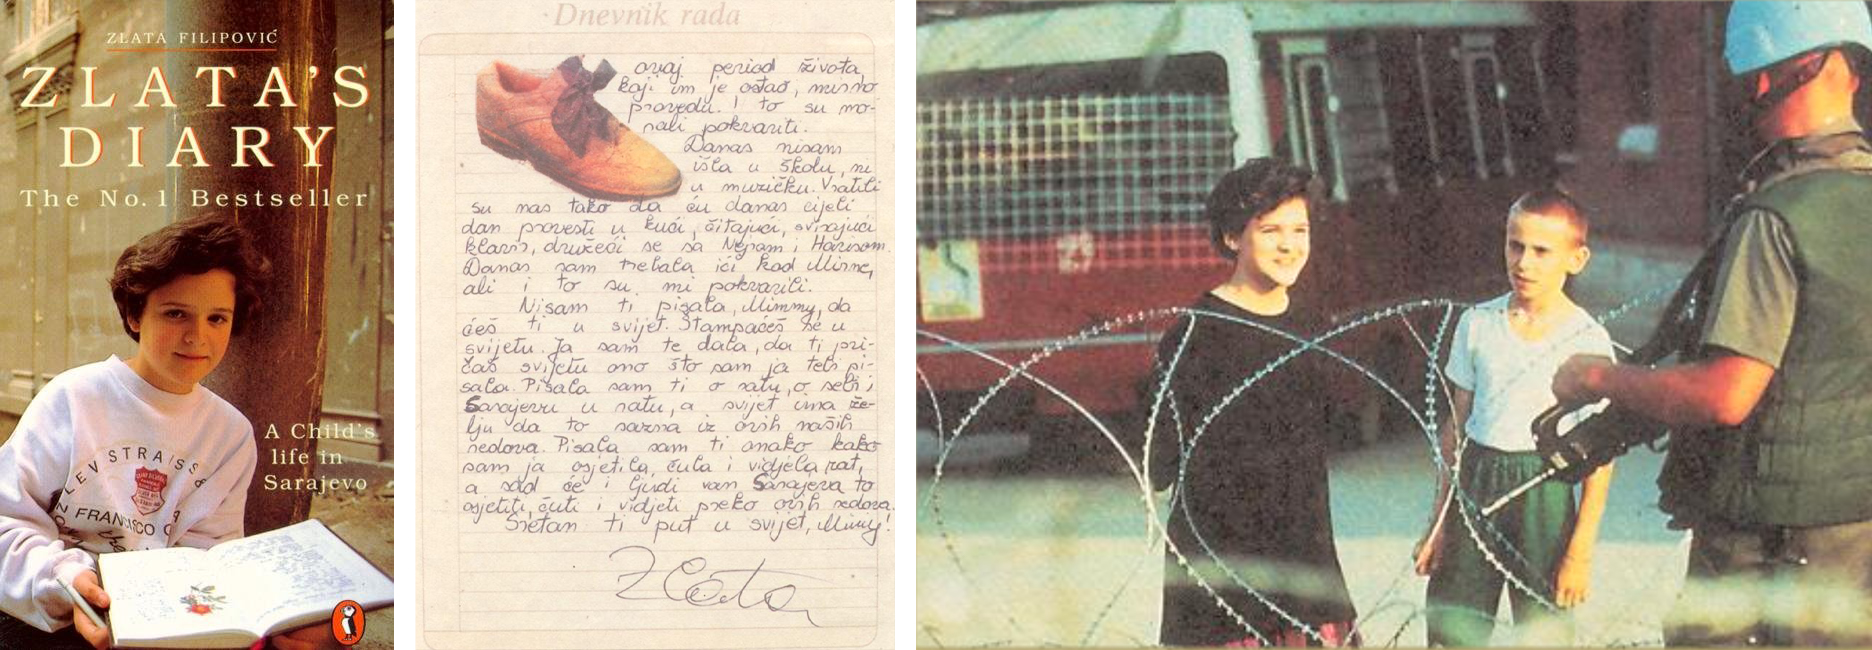 ZLATA FILIPOVIĆ
ZLATA'S
DIARY
The No.1 Bestseller
A Child's
life in
Sarajevo
LEVI STRAUSS &
SAN FRANCISCO CA
Dnevnik rada
ovaj period života,
koji im je ostao, mirno
provedu. I to su mo-
rali pokvariti.
Danas nisam
išla u školu, ni
u muzičku. Vratili
su nas tako da ću danas cijeli
dan provesti u kući, čitajući, svirajući
klavir, družeći se sa Nejrom i Harisom.
Danas sam trebala ići kod Mirne,
ali i to su mi pokvarili.
Nisam ti pisala, Mimmy, da
ćeš ti u svijet. Štampaćeš se u
svijetu. Ja sam te dala, da ti pri-
čaš svijetu ono što sam ja tebi pi-
sala. Pisala sam ti o ratu, o sebi i
Sarajevu u ratu, a svijet ima že-
lju da to sazna iz ovih naših
redova. Pisala sam ti onako kako
sam ja osjetila, čula i vidjela rat,
a sad će i ljudi van Sarajeva to
osjetiti, čuti i vidjeti preko ovih redova.
Sretan ti put u svijet, Mimmy!
Zlata